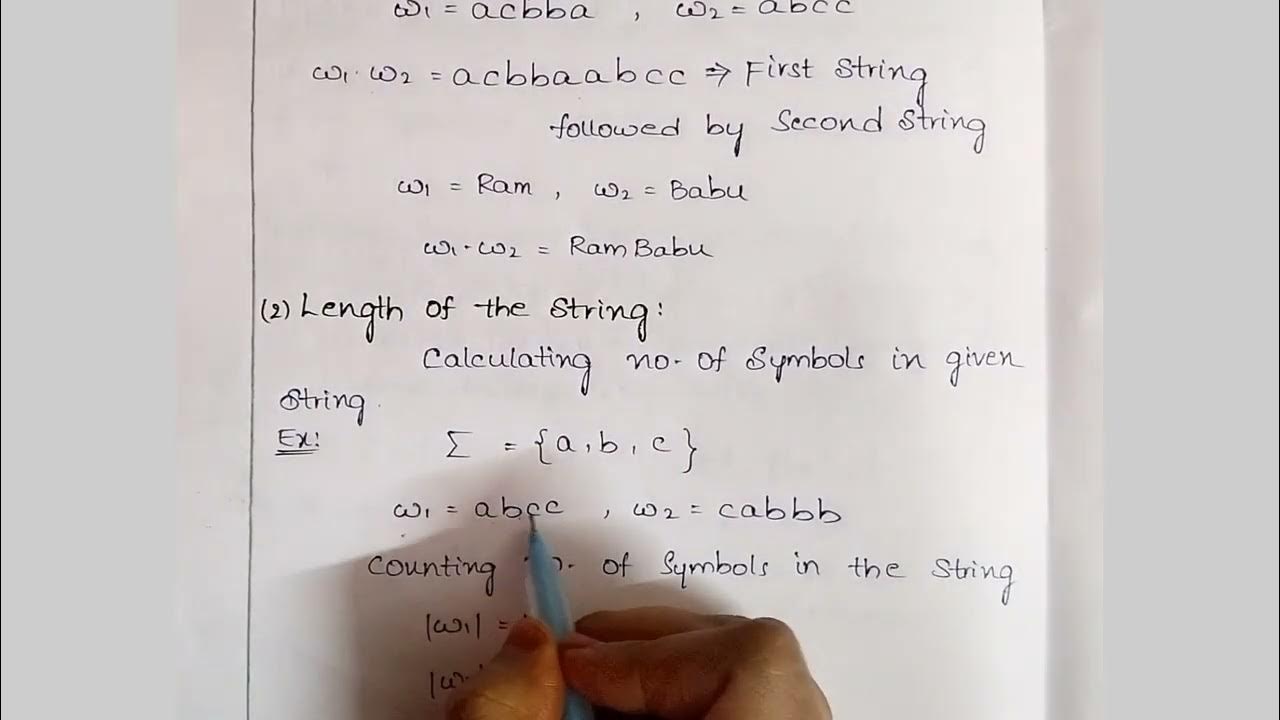 ω1 = acbba , ω2 = abcc
ω1 · ω2 = acbbaabcc ⇒ First String
followed by Second String
ω1 = Ram , ω2 = Babu
ω1 · ω2 = RamBabu
(2) Length of the String:
Calculating no. of Symbols in given
String.
Ex: Σ = {a, b, c}
ω1 = abcc , ω2 = cabbb
Counting of Symbols in the String
|ω1| =